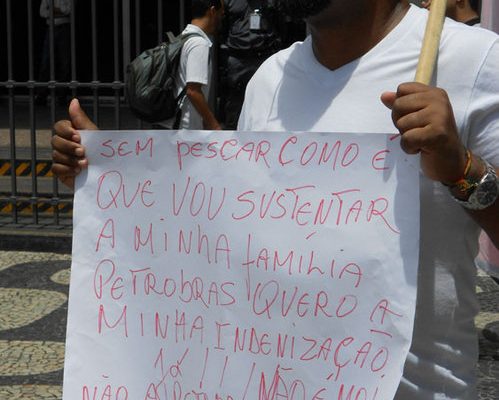 SEM PESCAR COMO É
QUE VOU SUSTENTAR
A MINHA FAMÍLIA
PETROBRAS QUERO A
MINHA INDENIZAÇÃO
JÁ!!
NÃO A / NÃO É